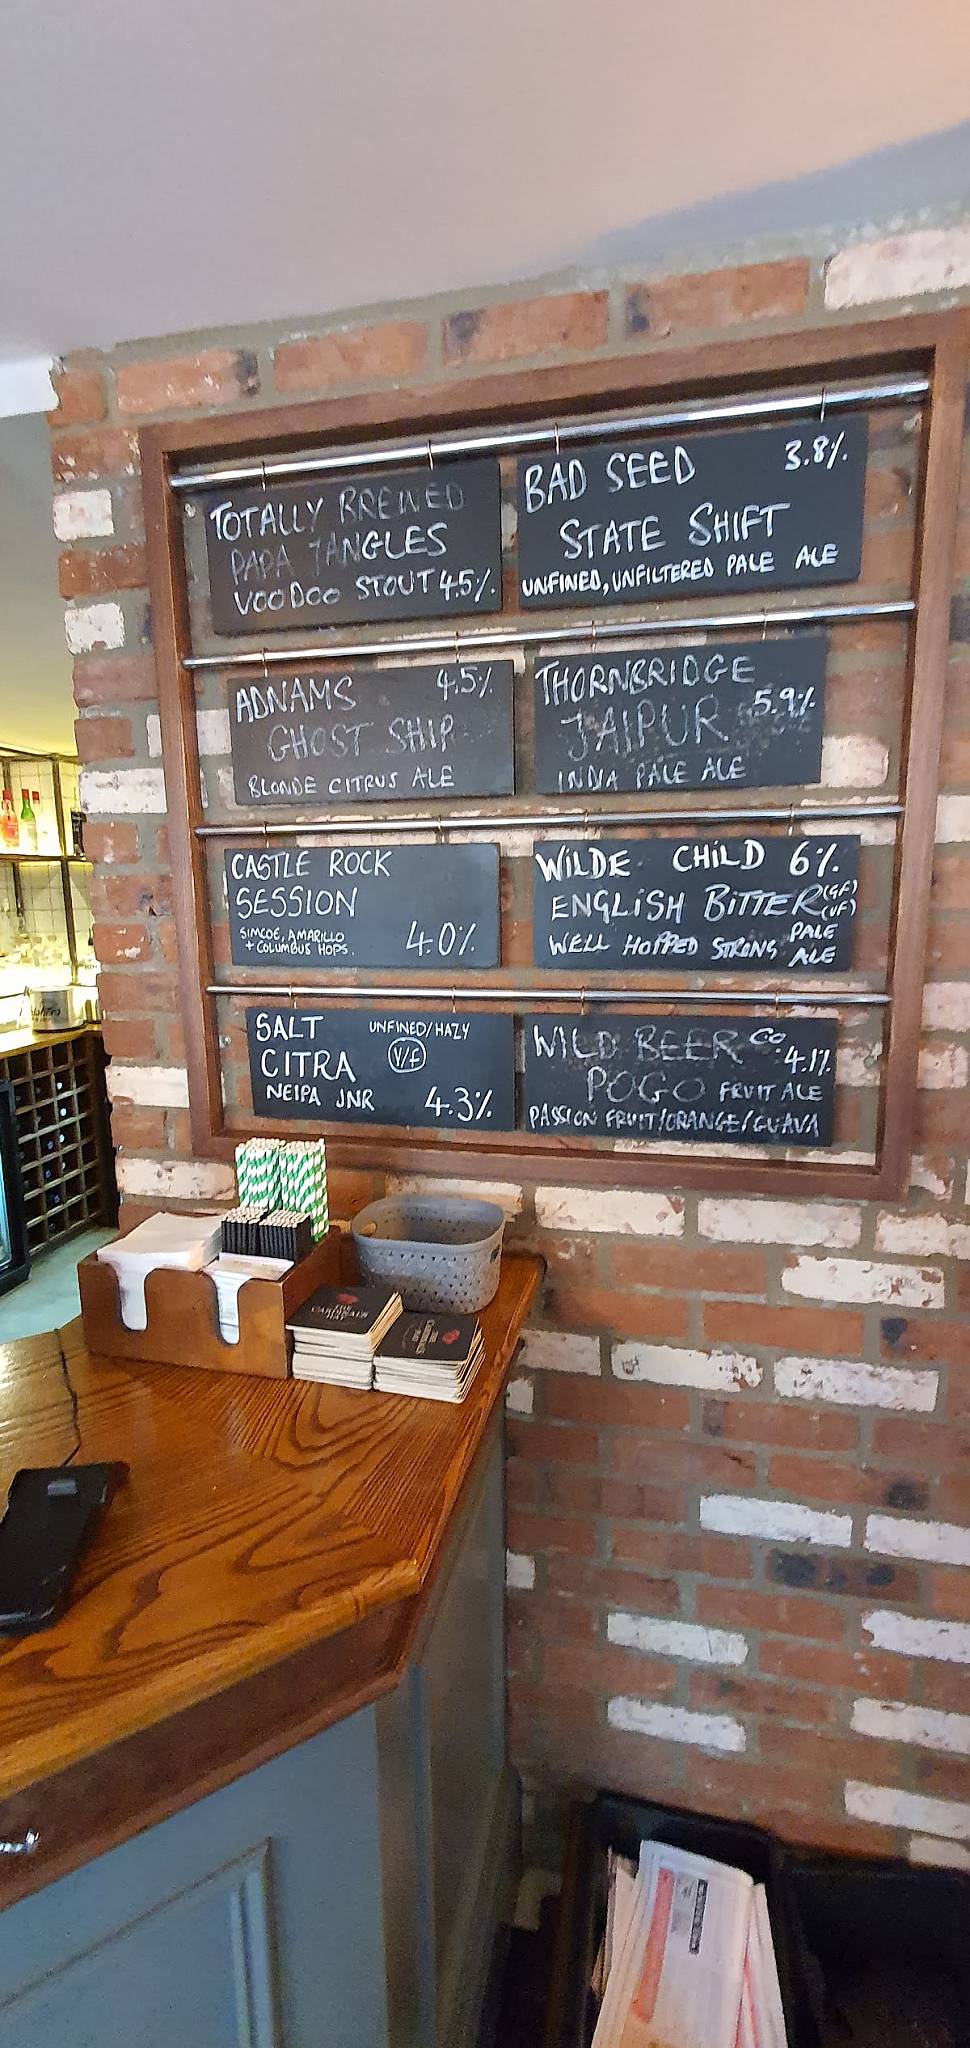 TOTALLY BREWED
PAPA JANGLES
VOODOO STOUT 4.5%
BAD SEED 3.8%
STATE SHIFT
UNFINED, UNFILTERED PALE ALE
ADNAMS 4.5%
GHOST SHIP
BLONDE CITRUS ALE
THORNBRIDGE
JAIPUR 5.9%
INDIA PALE ALE
CASTLE ROCK
SESSION
SIMCOE, AMARILLO
+ COLUMBUS HOPS. 4.0%
WILDE CHILD 6%
ENGLISH BITTER (GF)
(VF)
WELL HOPPED STRONG PALE
ALE
SALT UNFINED/HAZY
CITRA V/F
NEIPA JNR 4.3%
WILD BEER CO
4.1%
POGO FRUIT ALE
PASSION FRUIT/ORANGE/GUAVA
THE
CARDINALS
HAT
THE
CARDINALS
HAT